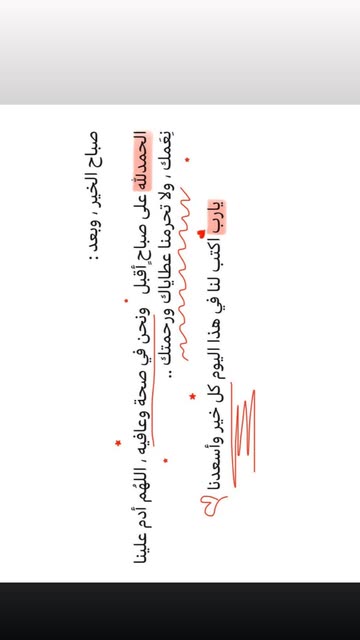 صباح الخير ، وبعد :
الحمدلله على صباحٍ أقبل ونحن في صحة وعافيه ، اللهُم أدم علينا
نِعَمك ، ولا تحرمنا عطاياك ورحمتك ..
يارب اكتب لنا في هذا اليوم كل خير وأسعدنا